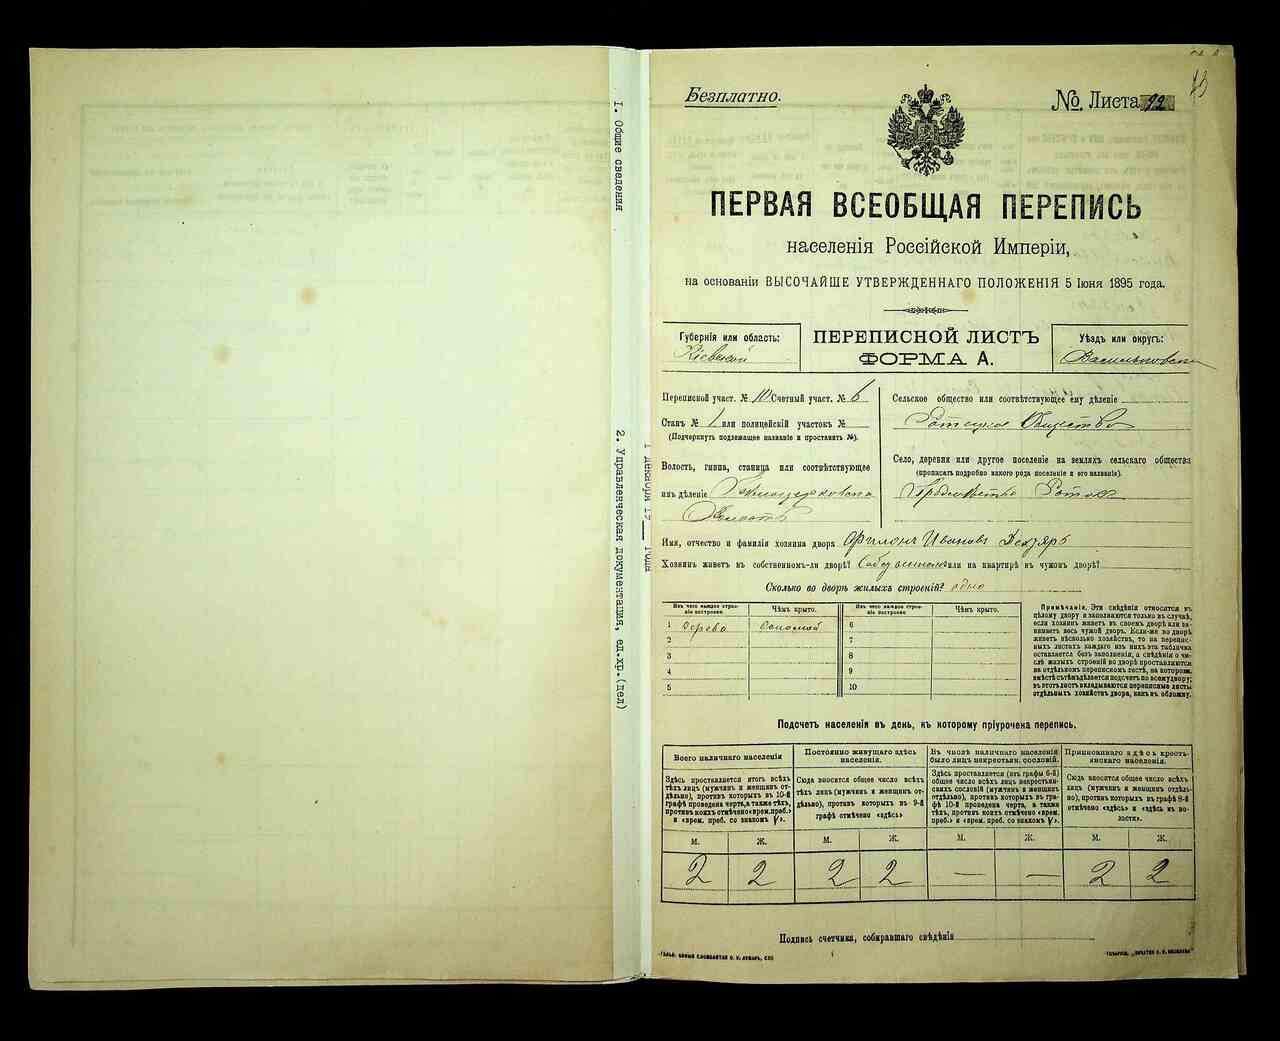 1. Общие сведения
2. Управленческая документация, ед.хр.(дел)
1 декабря 19__ года
Безплатно.
№. Листа 92
13
ПЕРВАЯ ВСЕОБЩАЯ ПЕРЕПИСЬ
населенія Россійской Имперіи,
на основаніи ВЫСОЧАЙШЕ УТВЕРЖДЕННАГО ПОЛОЖЕНІЯ 5 Іюня 1895 года.
Губернія или область:
Кіевской
ПЕРЕПИСНОЙ ЛИСТЪ
ФОРМА А.
Уѣздъ или округъ:
Васильковскій
Переписной участ. № Счетный участ. № 6
Станъ № 1 или полицейскій участокъ №
(Подчеркнуть подлежащее названіе и проставить №).
Волость, гмина, станица или соотвѣтствующее
имъ дѣленіе
Волость
Сельское общество или соотвѣтствующее ему дѣленіе
Общество
Село, деревня или другое поселеніе на земляхъ сельскаго общества
(прописать подробно какого рода поселеніе и его названіе).
Имя, отчество и фамилія хозяина двора Филонъ Ивановъ
Хозяинъ живетъ въ собственномъ-ли дворѣ? или на квартирѣ въ чужомъ дворѣ?
Сколько во дворѣ жилыхъ строеній? одно
Изъ чего каждое строеніе построено.
Чѣмъ крыто.
Изъ чего каждое строеніе построено.
Чѣмъ крыто.
1 дерево соломой 6
2 7
3 8
4 9
5 10
Примѣчанія. Эти свѣдѣнія относятся къ
цѣлому двору и заполняются только въ случаѣ,
если хозяинъ живетъ въ своемъ дворѣ или занимаетъ
весь чужой дворъ. Если-же во дворѣ
живетъ нѣсколько хозяйствъ, то на переписныхъ
листахъ каждаго изъ нихъ эта табличка
оставляется безъ заполненія, а свѣдѣнія о числѣ
жилыхъ строеній во дворѣ проставляются
на отдѣльномъ переписномъ листѣ, на которомъ
вмѣстѣ съ тѣмъ дѣлается подсчетъ по всему двору;
въ этотъ листъ вкладываются переписные листы
отдѣльныхъ хозяйствъ двора, какъ въ обложку.
Подсчетъ населенія въ день, къ которому пріурочена перепись.
Всего наличнаго населенія
Постоянно живущаго здѣсь населенія.
Въ числѣ наличнаго населенія было лицъ некрестьян. сословій.
Приписаннаго здѣсь крестьянскаго населенія.
Здѣсь проставляется итогъ всѣхъ
тѣхъ лицъ (мужчинъ и женщинъ отдѣльно),
противъ которыхъ въ 10-й
графѣ проведена черта, а также тѣхъ,
противъ коихъ отмѣчено «врем. преб.»
и «врем. преб. со знакомъ V».
Сюда вносится общее число всѣхъ
тѣхъ лицъ (мужчинъ и женщинъ отдѣльно),
противъ которыхъ въ 9-й
графѣ отмѣчено «здѣсь»
Здѣсь проставляется (изъ графы 6-й)
общее число всѣхъ лицъ некрестьянскихъ
сословій (мужчинъ и женщинъ
отдѣльно), противъ которыхъ въ графѣ
10-й проведена черта, а также
тѣхъ, противъ коихъ отмѣчено «врем.
преб.» и «врем. преб. со знакомъ V».
Сюда вносится общее число всѣхъ
лицъ (мужчинъ и женщинъ отдѣльно),
противъ которыхъ въ графѣ 8-й
отмѣчено «здѣсь» и «здѣсь въ волости».
М. Ж. М. Ж. М. Ж. М. Ж.
2 2 2 2 — — 2 2
Подпись счетчика, собиравшаго свѣдѣнія